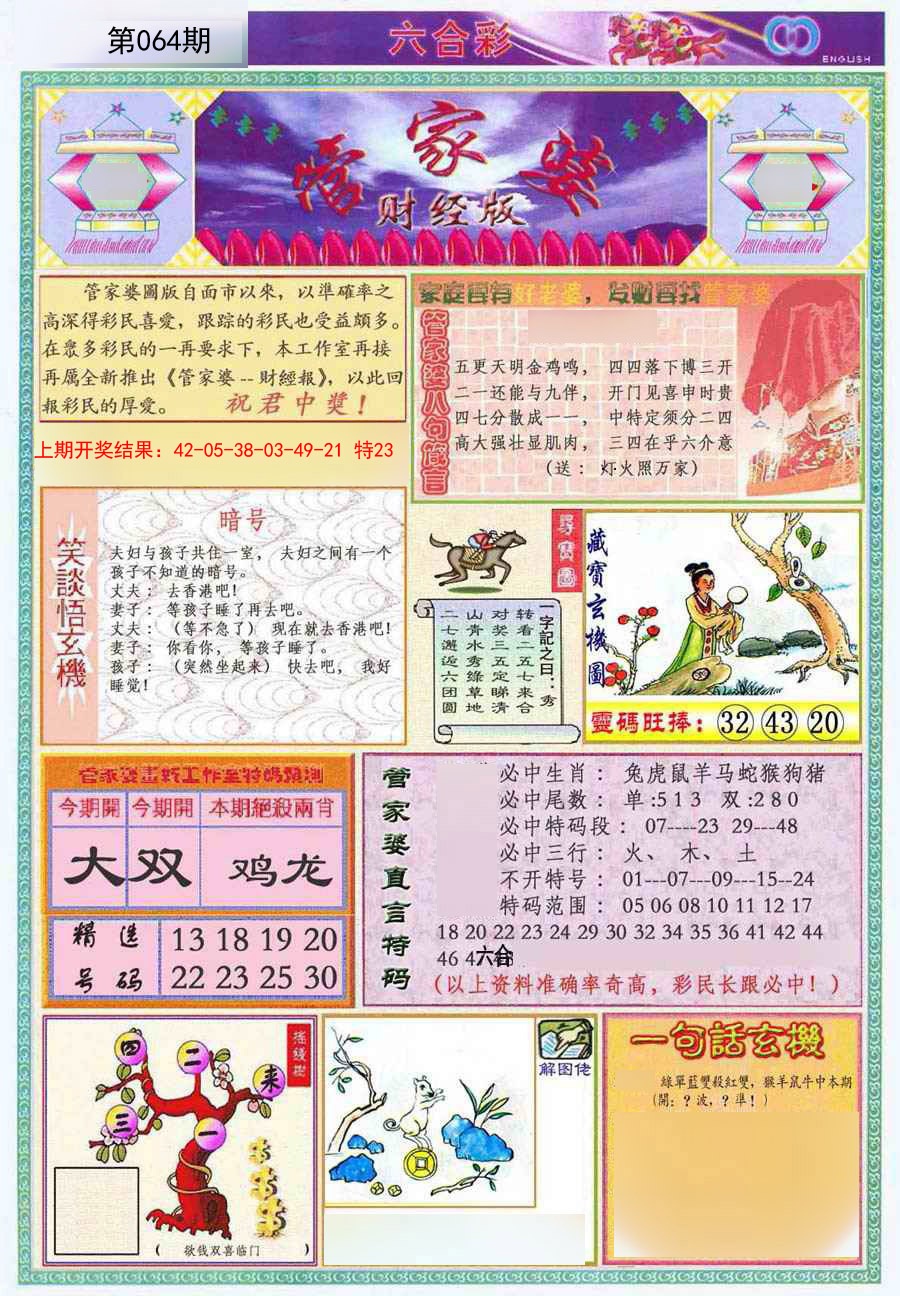 第064期
六合彩
ENGLISH
管家婆
财经版
管家婆圖版自面市以來，以準確率之
高深得彩民喜愛，跟踪的彩民也受益頗多。
在眾多彩民的一再要求下，本工作室再接
再厲全新推出《管家婆--財經報》，以此回
報彩民的厚愛。 祝君中獎！
上期开奖结果：42-05-38-03-49-21 特23
家庭要有好老婆，发财要找管家婆
管家婆八句箴言
五更天明金鸡鸣， 四四落下博三开
二一还能与九伴， 开门见喜申时贵
四七分散成一一， 中特定须分二四
高大强壮显肌肉， 三四在乎六介意
（送：灯火照万家）
笑談悟玄機
暗号
夫妇与孩子共住一室， 夫妇之间有一个
孩子不知道的暗号。
丈夫：去香港吧！
妻子：等孩子睡了再去吧。
丈夫：（等不急了） 现在就去香港吧！
妻子：你看你，等孩子睡了。
孩子：（突然坐起来） 快去吧， 我好
睡觉！
尋寶圖
一字記之曰：秀
转看二五七来合
对奖三五定睇清
山青水秀綠草地
二七邂逅六团圆
藏寶玄機圖
靈碼旺捧：32 43 20
今期開 今期開 本期絕殺兩肖
大 双 鸡龙
精选号码
13 18 19 20
22 23 25 30
管家婆直言特码
必中生肖：兔虎鼠羊马蛇猴狗猪
必中尾数：单:5 1 3 双:2 8 0
必中特码段：07----23 29---48
必中三行：火、 木、 土
不开特号：01---07---09---15--24
特码范围：05 06 08 10 11 12 17
18 20 22 23 24 29 30 32 34 35 36 41 42 44
46 4
六合
（以上资料准确率奇高，彩民长跟必中！）
搖錢樹
四
二
来
三
一
（ 欲钱双喜临门 ）
解图佬
一句話玄機
綠單藍雙殺紅雙，猴羊鼠牛中本期
（開：？波，？準！）